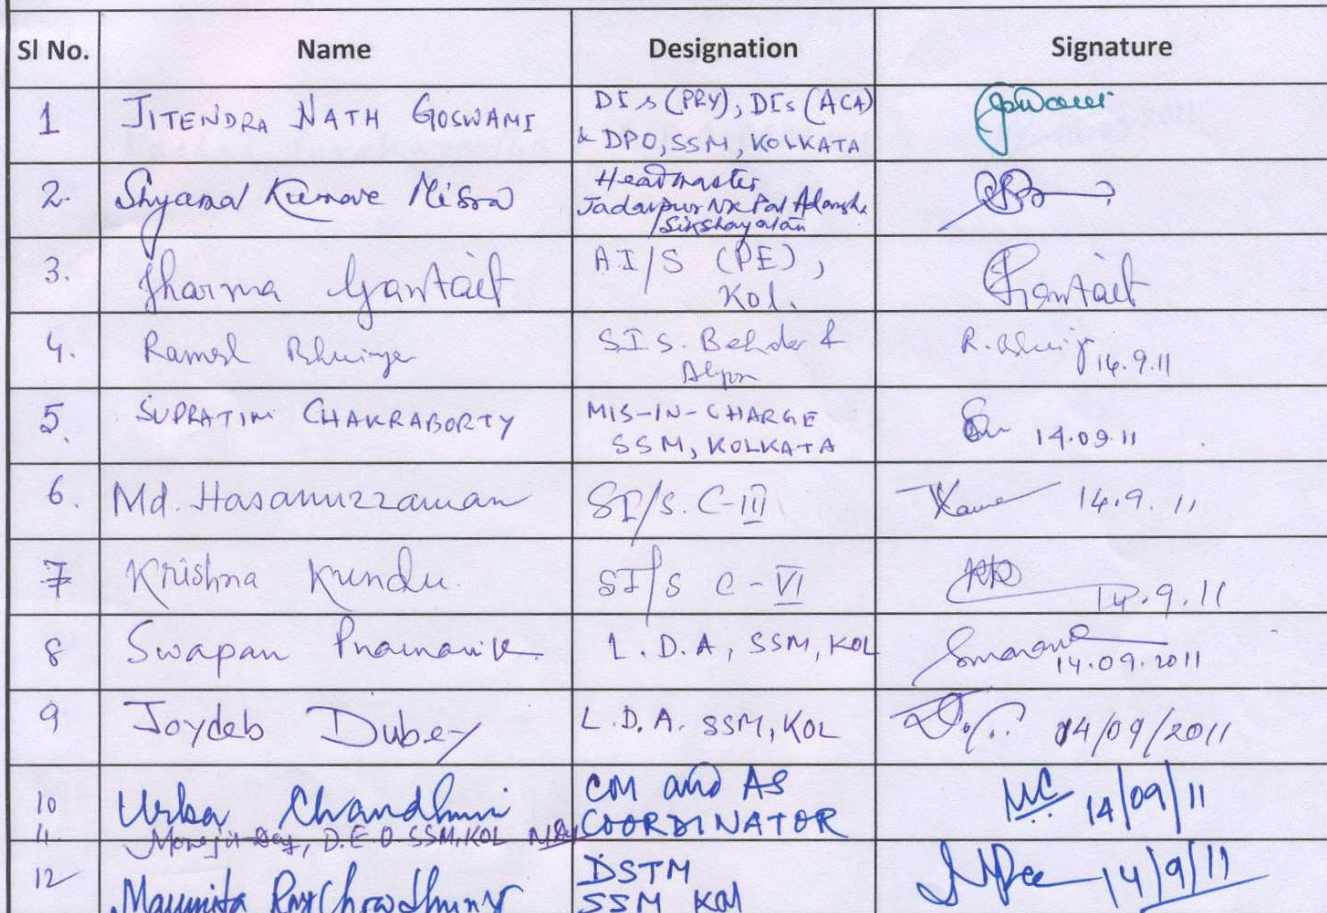 Sl No. Name Designation Signature
1 JITENDRA NATH GOSWAMI DIs (PRY), DIs (ACA)
& DPO, SSM, KOLKATA
2. Shyamal Kumar Misra Headmaster
Jadavpur N.K Pal Adarsha
Sikshayatan
3. Jharna Gantait AI/S (PE),
Kol.
Gantait
4. Ramesh Bhuinya S.I.S. Behala &
R. Bhuinya 14.9.11
5. SUPRATIM CHAKRABORTY MIS-IN-CHARGE
SSM, KOLKATA
14.09.11
6. Md. Hasanuzzaman SI/S. C-III 14.9.11
7 Krishna Kundu. SI/S C-VI 14.9.11
8 Swapan Pramanik L.D.A, SSM, KOL
14.09.2011
9 Joydeb Dubey L.D.A. SSM, KOL 14/09/2011
10 Urba Chandhuri CM and AS
COORDINATOR
UC 14/09/11
11. Monojit Dey, D.E.O. SSM, KOL
12 Maumita RayChowdhury DSTM
SSM KOL
14/9/11